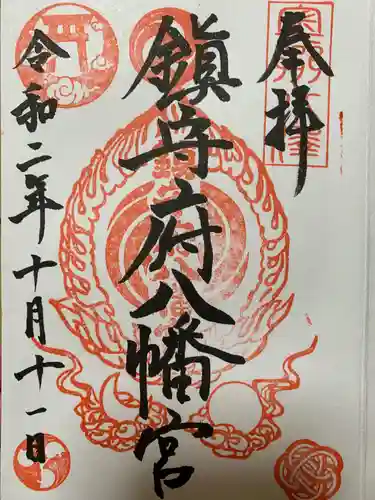 奉拝
鎮守府八幡宮
令和二年十月十一日